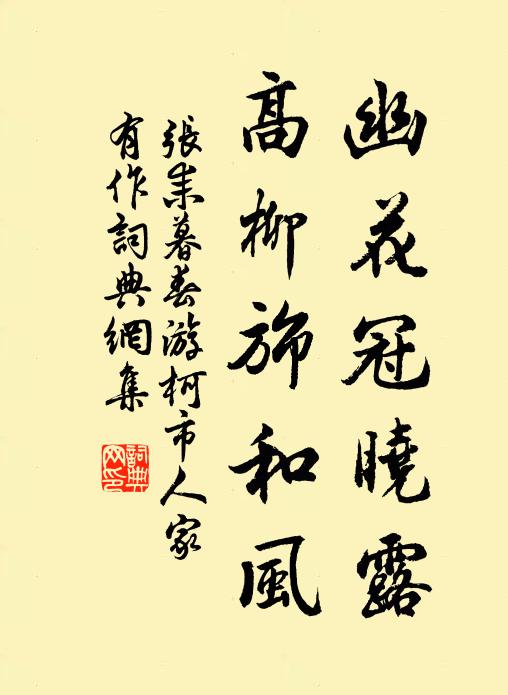 幽花冠曉露
高柳旆和風
張耒暮春游柯市人家
有作詞典網集
詞典
网印